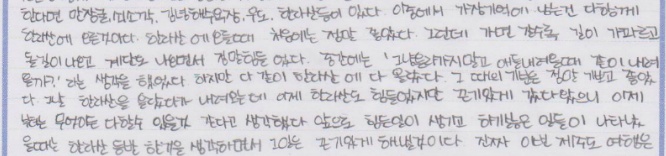 한다면 만장굴, 미소각, 김녕해수욕장, 우도, 한라산등이 있다. 이중에서 가장기억에 남는건 다함께
한라산에 오른것이다. 한라산에 오를때 처음에는 정말 좋았다. 그런데 가면 갈수록 길이 가파르고
돌길이 나오고 계단도 나오면서 정말힘들었다. 중간에는 '그냥올라가지말고 애들내려올때 같이 내려
올까?' 라는 생각을 했었다 하지만 다같이 한라산에 다 올랐다. 그 때의 기분은 정말 기쁘고 좋았
다. 그날 한라산을 올랐다가 내려왔는데 어제 한라산도 힘들었지만 끈기있게 갔다왔으니 이제
나는 무엇이든 다할수 있을것 같다고 생각했다 앞으로 힘든일이 생기고 하기싫은 일들이 나타났
을때는 한라산 등반 한것을 생각하면서 그일을 끈기있게 해낼것이다 진짜 이번 제주도 여행은